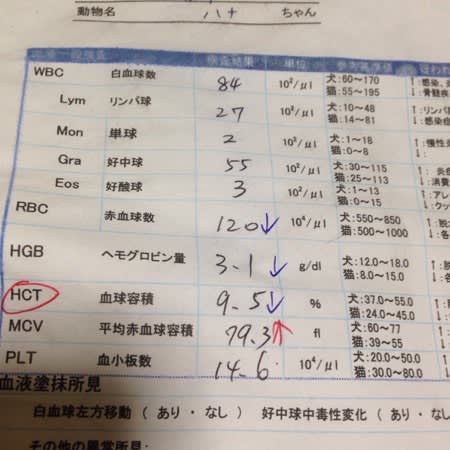 動物名 ハナ ちゃん
検査結果 単位 参考基準値
WBC 白血球数 84 10²/μl 犬:60～170 猫:55～195
Lym リンパ球 27 10²/μl 犬:10～48 猫:14～81
Mon 単球 2 10²/μl 犬:1～18 猫:0～8
Gra 好中球 55 10²/μl 犬:30～115 猫:25～113
Eos 好酸球 3 10²/μl 犬:1～13 猫:0～15
RBC 赤血球数 120↓ 10⁴/μl 犬:550～850 猫:500～1000
HGB ヘモグロビン量 3.1↓ g/dl 犬:12.0～18.0 猫:8.0～15.0
HCT 血球容積 9.5↓ % 犬:37.0～55.0 猫:24.0～45.0
MCV 平均赤血球容積 79.3↑ fl 犬:60～77 猫:39～55
PLT 血小板数 14.6 10⁴/μl 犬:20.0～50.0 猫:30.0～80.0
血液塗抹所見
白血球左方移動 ( あり ・ なし ) 好中球中毒性変化 ( あり ・ なし
その他の異常所見: